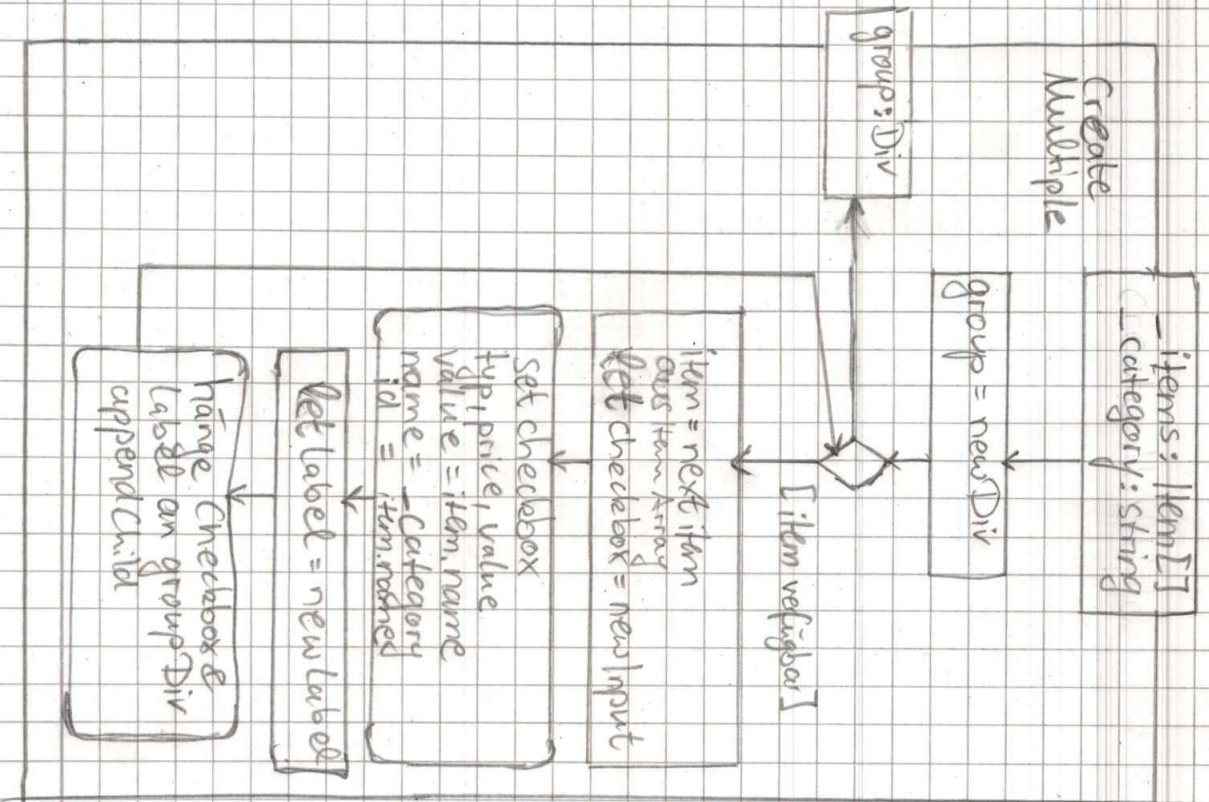 Create
Multiple
_items: Item[]
_category: string
group = new Div
group: Div
[item verfügbar]
item = next item
aus Item Array
let checkbox = new Input
set checkbox
typ, price, value
value = item.name
name = _category
id = item.named
let label = new label
hänge Checkbox &
Label an group Div
appendChild